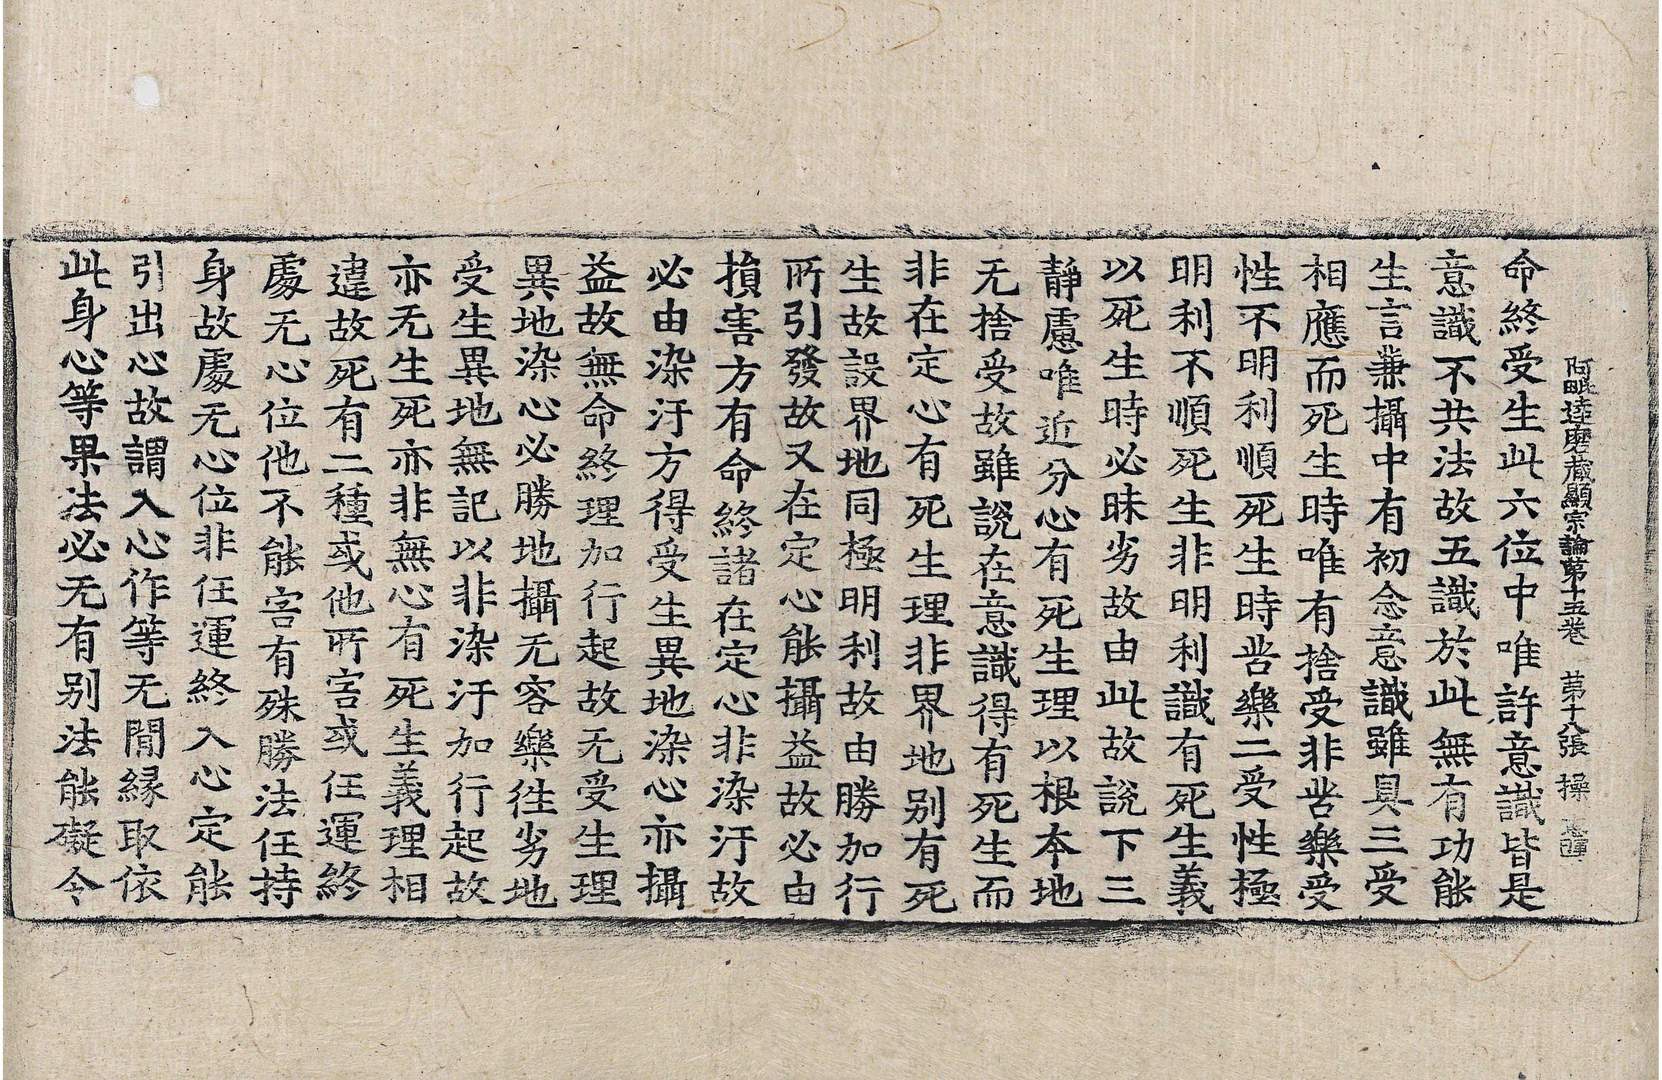 阿毗達磨藏顯宗論第十五卷 第十八張 操
命終受生此六位中唯許意識皆是
意識不共法故五識於此無有功能
生言兼攝中有初念意識雖具三受
相應而死生時唯有捨受非苦樂受
性不明利順死生時苦樂二受性極
明利不順死生非明利識有死生義
以死生時必昧劣故由此故說下三
靜慮唯近分心有死生理以根本地
无捨受故雖說在意識得有死生而
非在定心有死生理非界地別有死
生故設界地同極明利故由勝加行
所引發故又在定心能攝益故必由
損害方有命終諸在定心非染汙故
必由染汙方得受生異地染心亦攝
益故無命終理加行起故无受生理
異地染心必勝地攝无容樂往劣地
受生異地無記以非染汙加行起故
亦无生死亦非無心有死生義理相
違故死有二種或他所害或任運終
處无心位他不能害有殊勝法任持
身故處无心位非任運終入心定能
引出心故謂入心作等无間緣取依
此身心等果法必无有別法能礙令